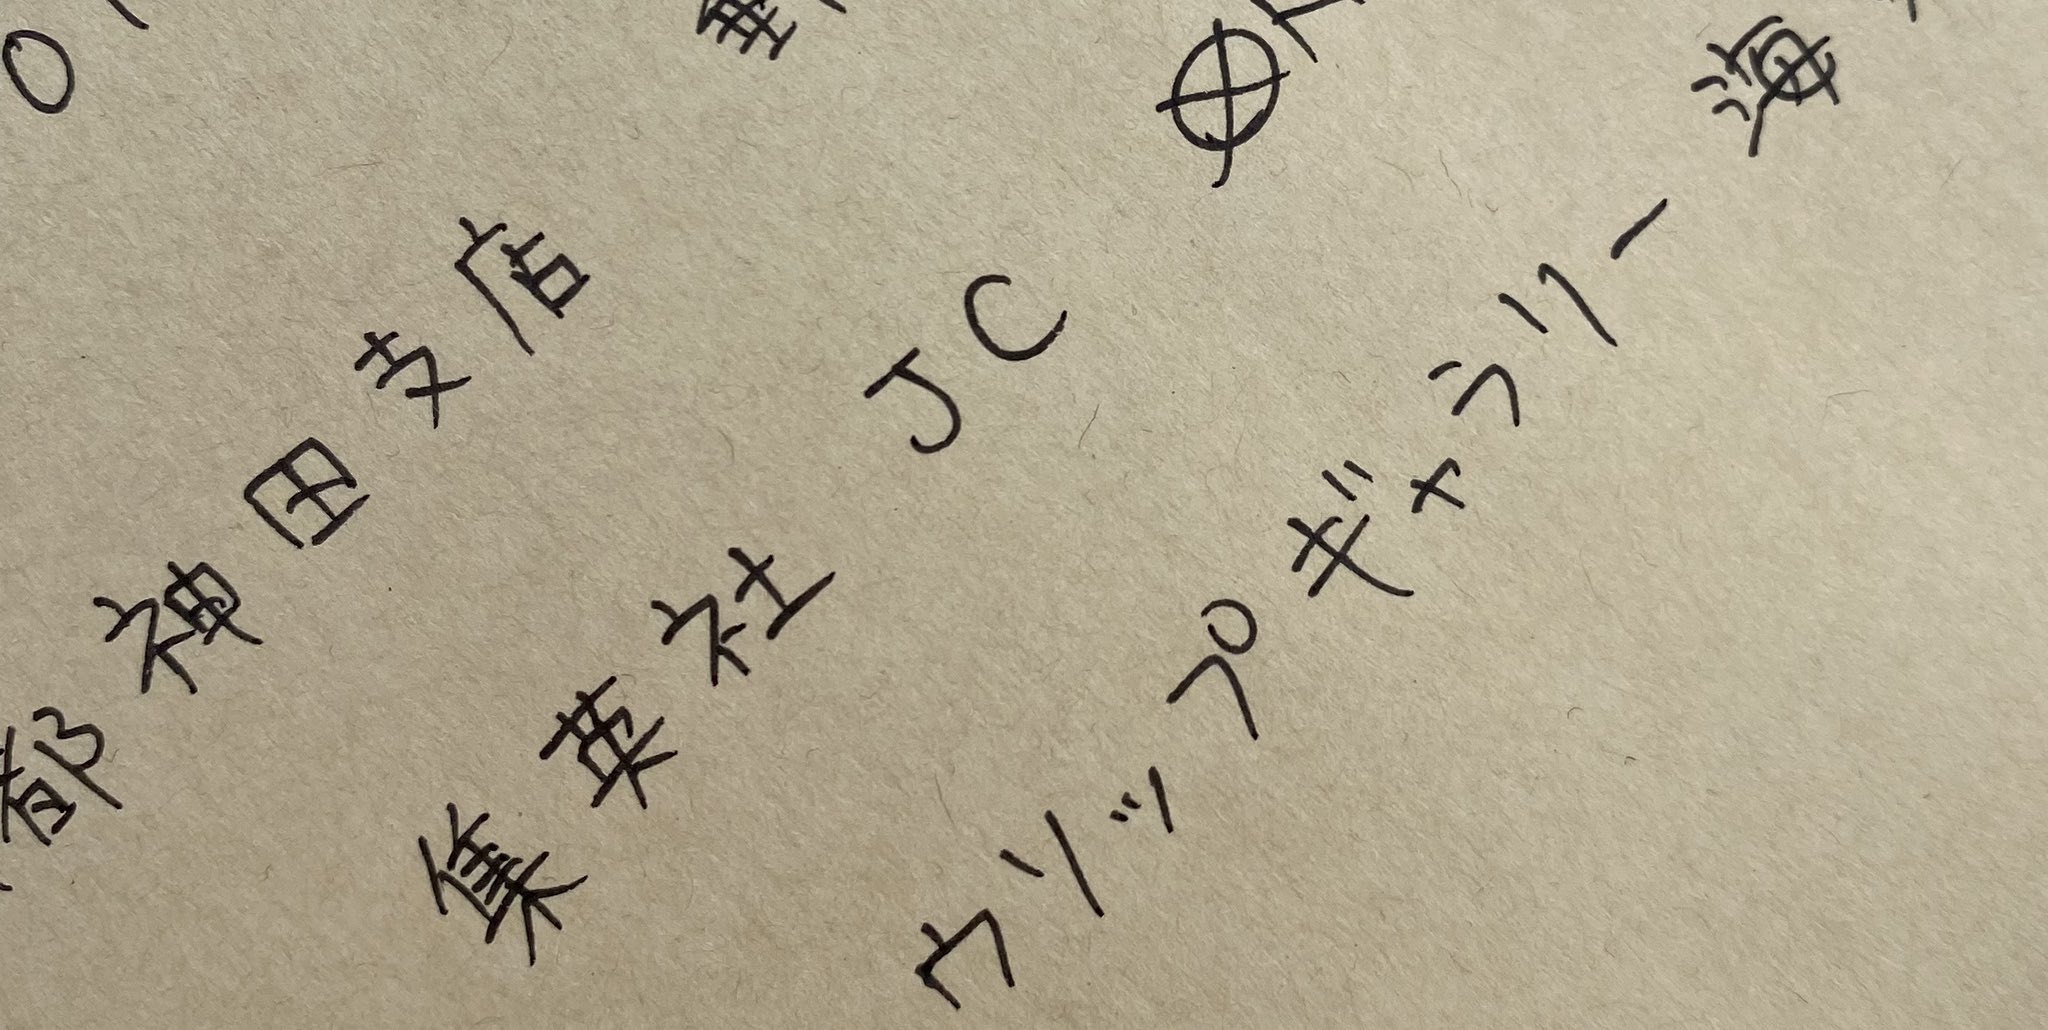 0
都神田支店
集英社 JC
ウソップギャラリー海